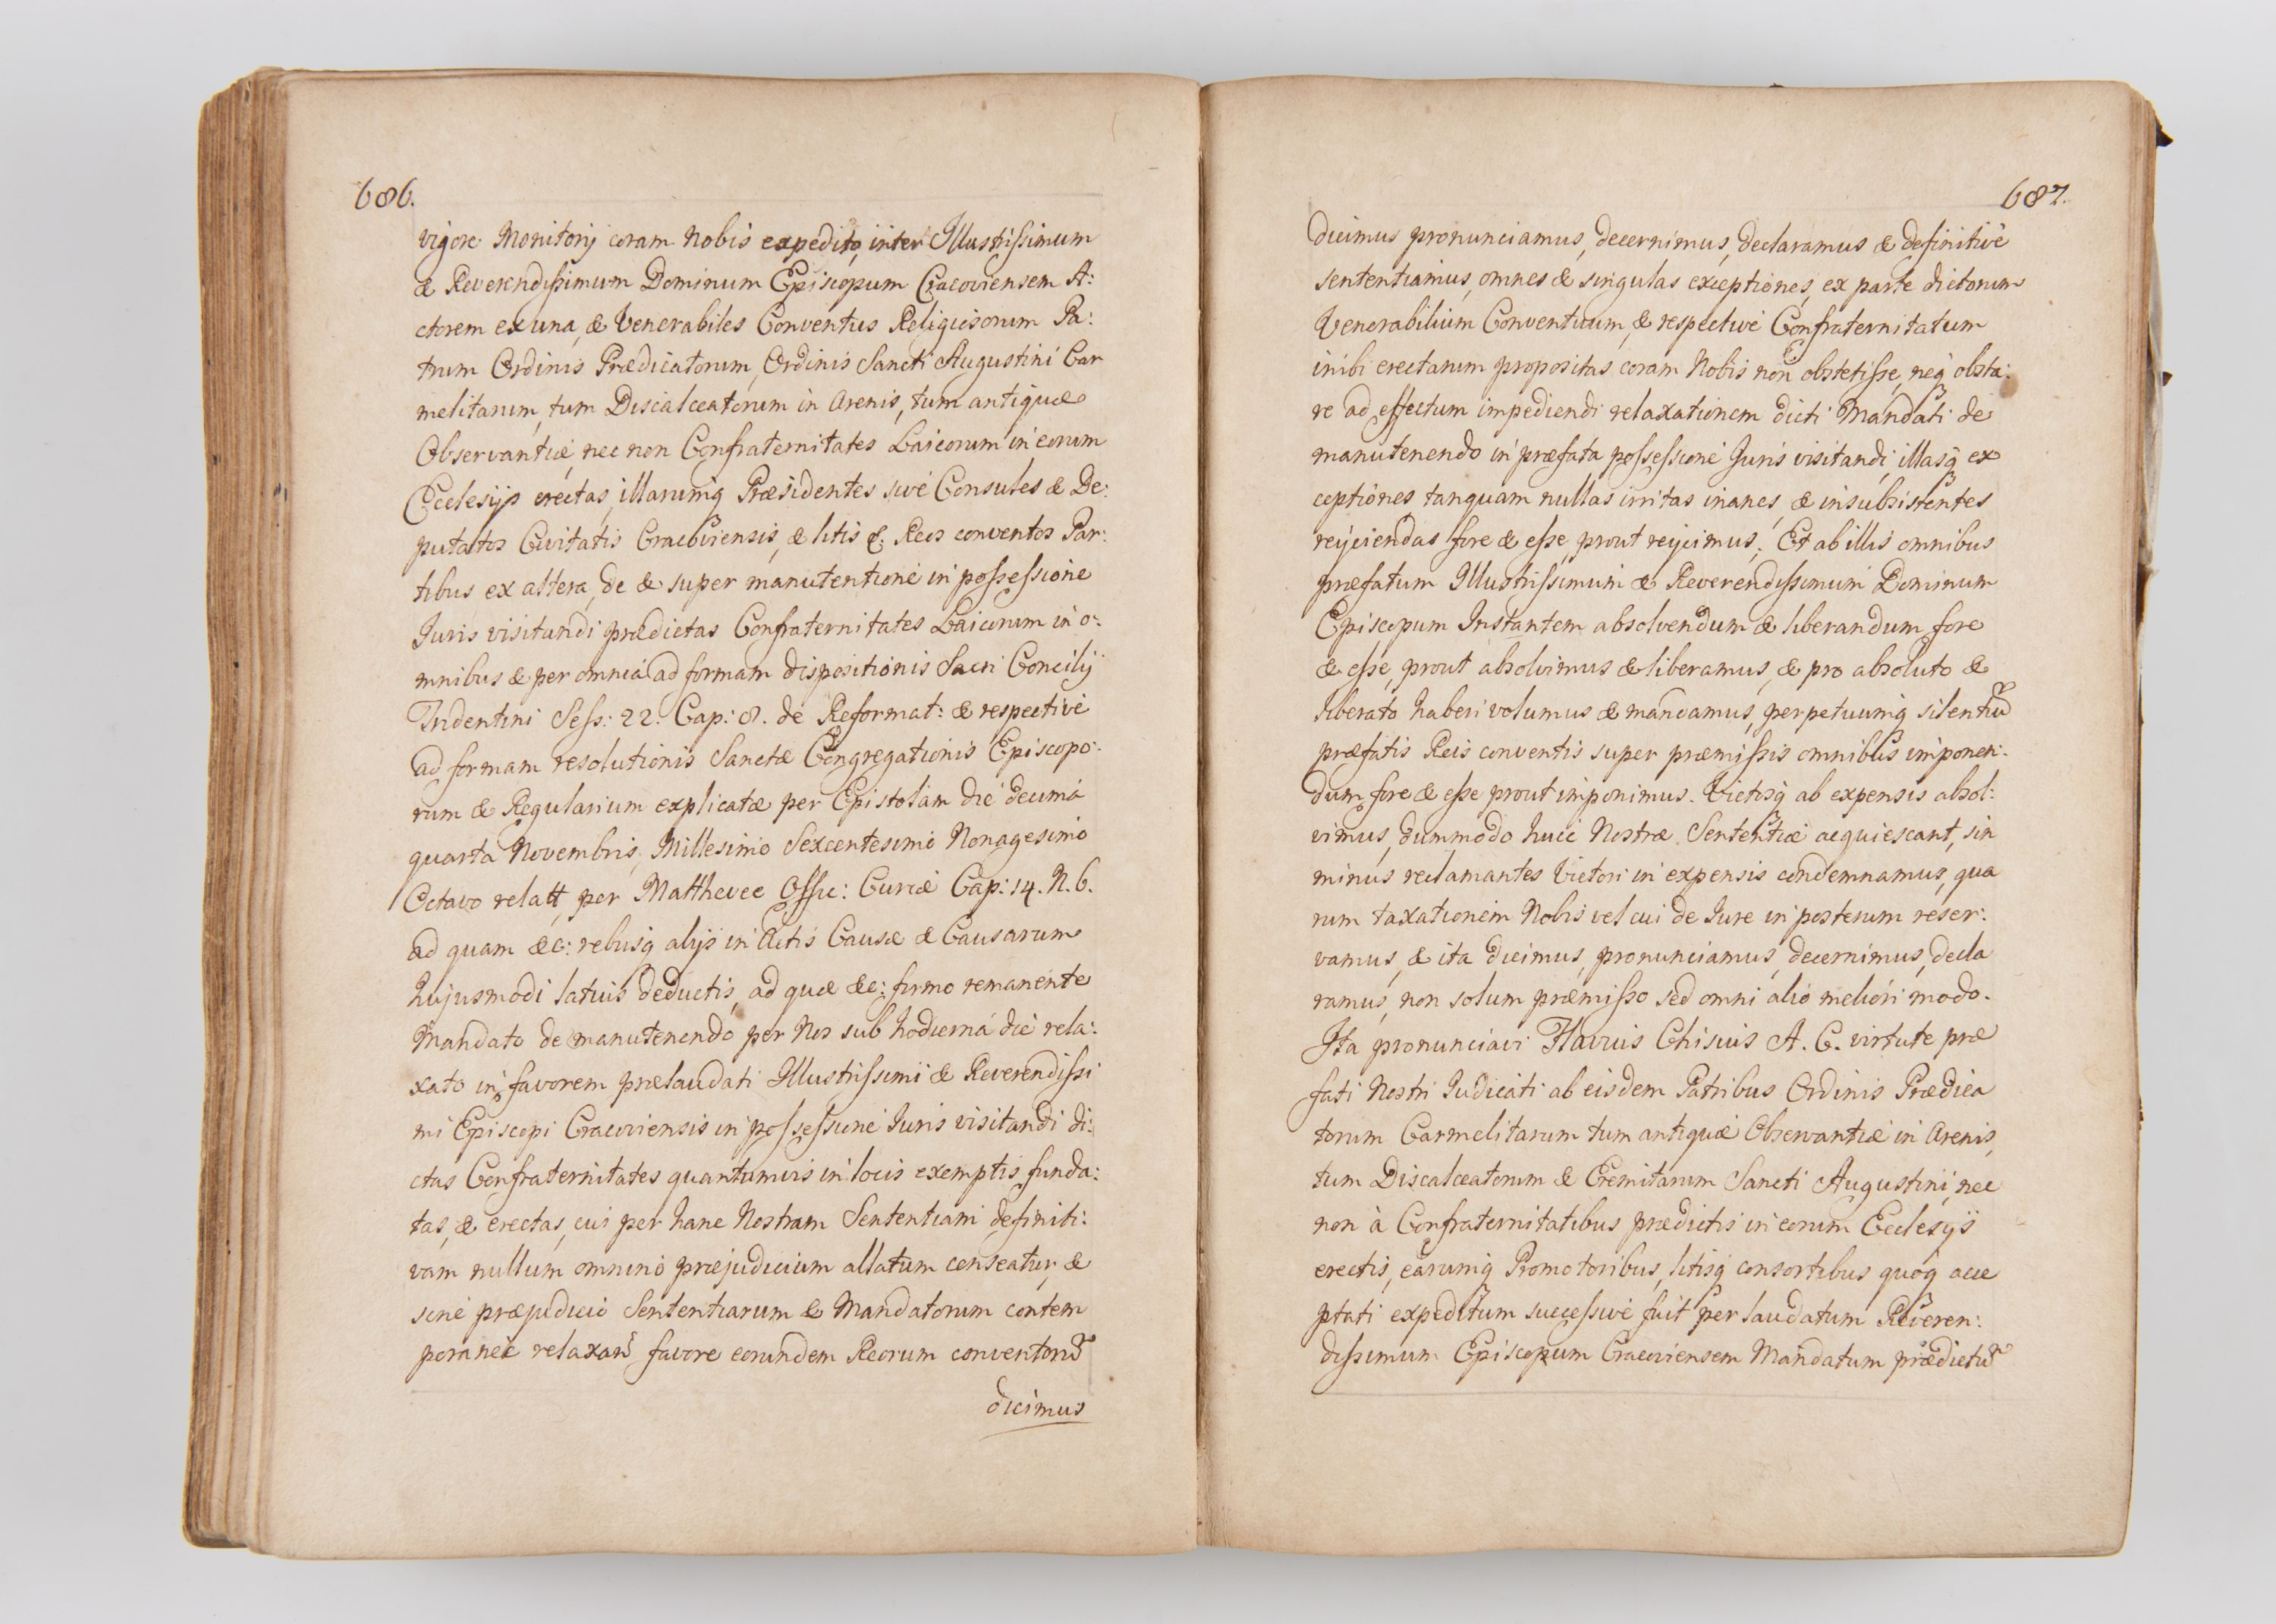 686.
vigore Monitorij coram Nobis expedito, inter Illustrissimum
& Reverendissimum Dominum Episcopum Cracoviensem A:
ctorem ex una, & Venerabiles Conventus Religiosorum Pa:
trum Ordinis Prædicatorum, Ordinis Sancti Augustini Car
melitarum, tum Discalceatorum in Arenis, tum antiquæ
Observantiæ, nec non Confraternitates Laicorum in eorum
Ecclesijs erectas, illarumq Præsidentes sivè Consules & De:
putatos Civitatis Cracoviensis, & litis &. Reos conventos Par:
tibus ex altera, de & super manutentione in possessione
Juris visitandi prædictas Confraternitates Laicorum in o:
mnibus & per omnia ad formam dispositionis Sacri Concilij
Tridentini Sess: 22. Cap: 8. de Reformat: & respectivè
ad formam resolutionis Sanctæ Congregationis Episcopo:
rum & Regularium explicatæ per Epistolam die decima
quarta Novembris, Millesimo Sexcentesimo Nonagesimo
Octavo relatt, per Mattheuce Offic: Curiæ Cap: 14. N. 6.
ad quam &c: rebusq alijs in Actis Causæ & Causarum
hujusmodi latius deductis, ad quæ &c: firmo remanente
Mandato de manutenendo, per Nos sub hodierna die rela:
xato in favorem prælaudati Illustrissimi & Reverendissi
mi Episcopi Cracoviensis in possessione Juris visitandi di:
ctas Confraternitates quantumvis in locis exemptis funda:
tas, & erectas, cui per hanc Nostram Sententiam definiti:
vam nullum omnino præjudicium allatum censeatur, &
sine præjudicio Sententiarum & Mandatorum contem
poranee relaxan favore eorundem Reorum conventorū
dicimus
687.
dicimus pronunciamus, decernimus, declaramus & definitivè
sententiamus, omnes & singulas exceptiones, ex parte dictorum
Venerabilium Conventuum, & respectivè Confraternitatum
inibi erectarum propositas coram Nobis non obstetisse, neq obsta:
re ad effectum impediendi relaxationem dicti Mandati de
manutenendo in præfata possessione Juris visitandi, illasq ex
ceptiones, tanquam nullas irritas inanes, & insubsistentes
reijciendas fore & esse, prout reijcimus, Et ab illis omnibus
præfatum Illustrissimum & Reverendissimum Dominum
Episcopum Instantem absolvendum & liberandum fore
& esse, prout absolvimus & liberamus, & pro absoluto &
liberato haberi volumus & mandamus, perpetuumq silentiū
præfatis Reis conventis super præmissis omnibus imponen:
dum fore & esse prout imponimus. Victosq ab expensis absol:
vimus, dummodo huic Nostræ Sententiæ acquiescant, sin
minus reclamantes Victori in expensis condemnamus, qua
rum taxationem Nobis vel cui de Jure in posterum reser:
vamus, & ita dicimus, pronunciamus, decernimus, decla
ramus, non solum præmisso sed omni alio meliori modo.
Ita pronunciavi Flavius Chisius A. C. virtute præ
fati Nostri Judicati ab eisdem Patribus Ordinis Prædica
torum Carmelitarum tum antiquæ Observantiæ in Arenis,
tum Discalceatorum & Eremitarum Sancti Augustini, nec
non à Confraternitatibus prædictis in eorum Ecclesijs
erectis, earumq Promotoribus, litisq consortibus quoq acce
ptati expeditum successivè fuit per laudatum Reveren:
dissimum Episcopum Cracoviensem Mandatum prædictū